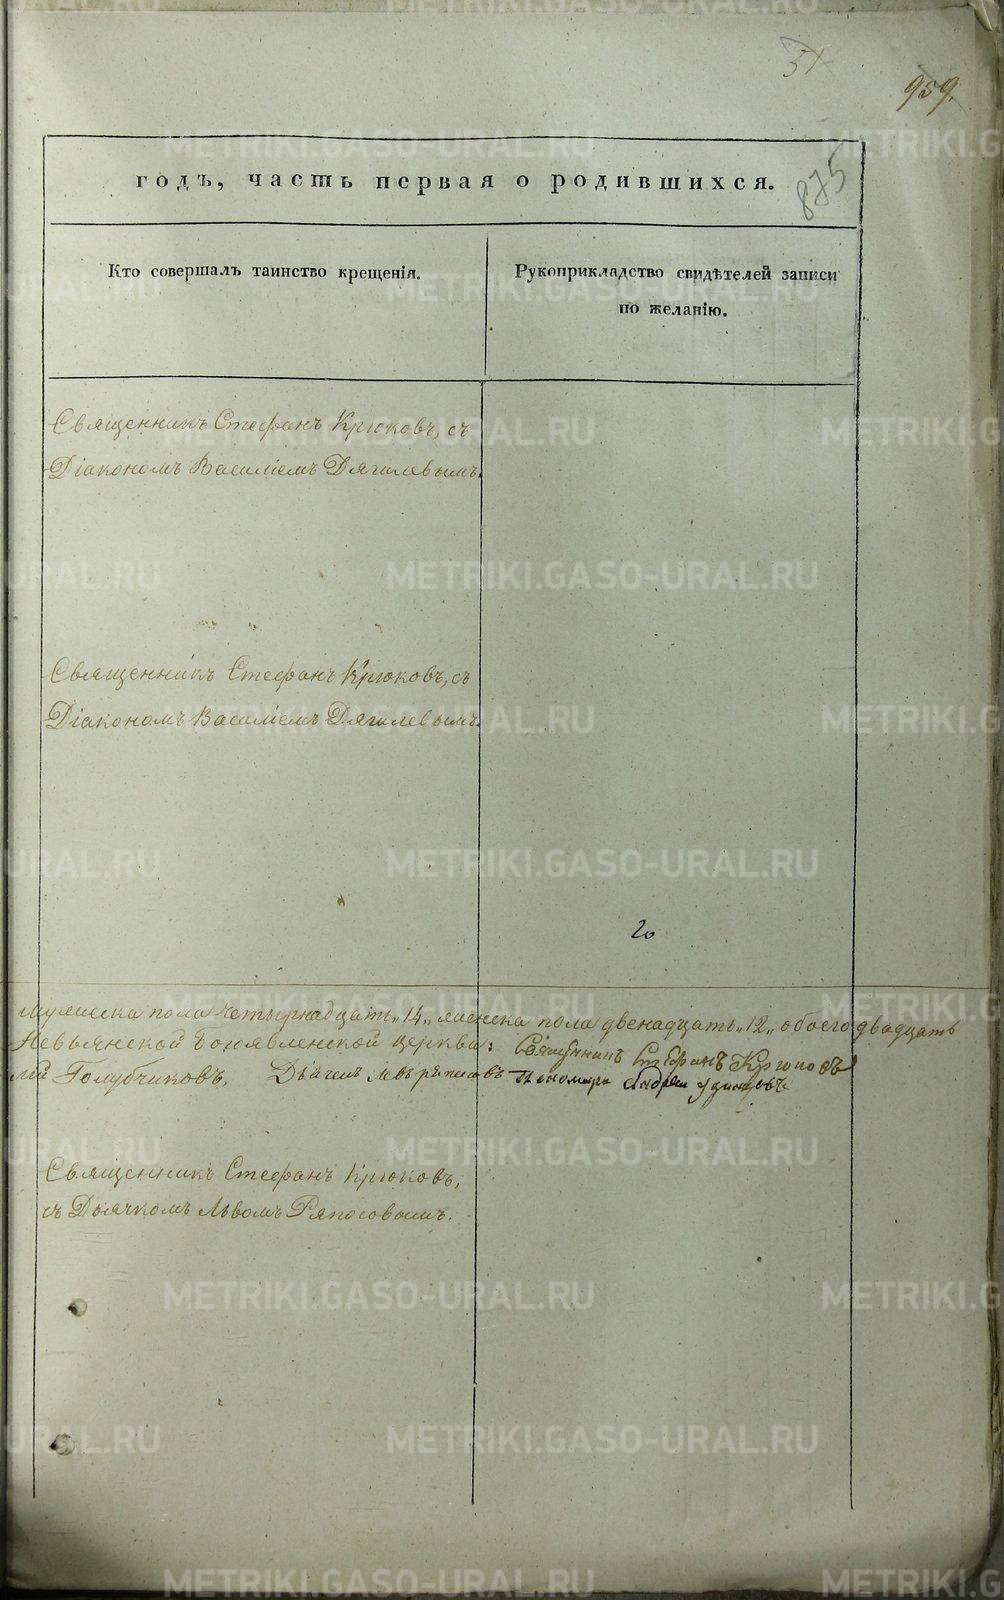 51
959.
годъ, часть первая о родившихся.
875
Кто совершалъ таинство крещенія.
Рукоприкладство свидѣтелей записи
по желанію.
Священникъ Стефанъ Крюковъ, съ
Діакономъ Василіемъ Дягилевымъ.
Священникъ Стефанъ Крюковъ, съ
Діакономъ Василіемъ Дягилевымъ.
20
мужеска пола четырнадцать „14„ женска пола двенадцать „12„ обоего двадцать
Невьянской Богоявленской церкви: Священникъ Стефанъ Крюковъ
Голубчиковъ, Дьячекъ Левъ Ряпосовъ Пономарь Андрей Удинцовъ
Священникъ Стефанъ Крюковъ,
съ Дьячкомъ Львомъ Ряпосовымъ.
METRIKI.GASO-URAL.RU